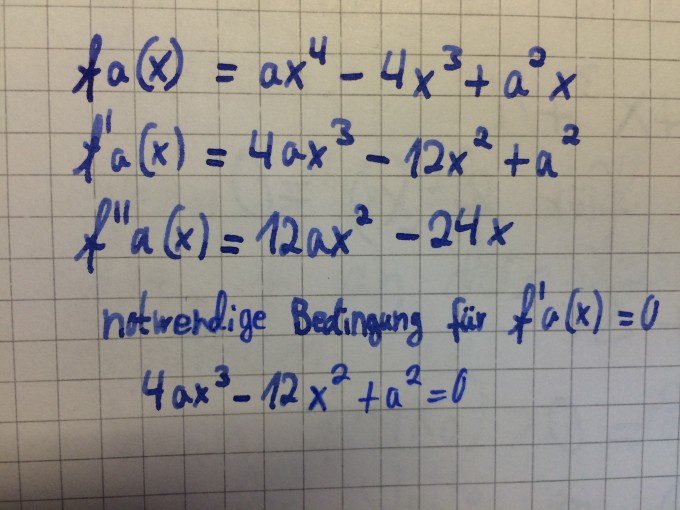 fa(x) = ax⁴ - 4x³ + a²x
f'a(x) = 4ax³ - 12x² + a²
f''a(x) = 12ax² - 24x
notwendige Bedingung für f'a(x) = 0
4ax³ - 12x² + a² = 0